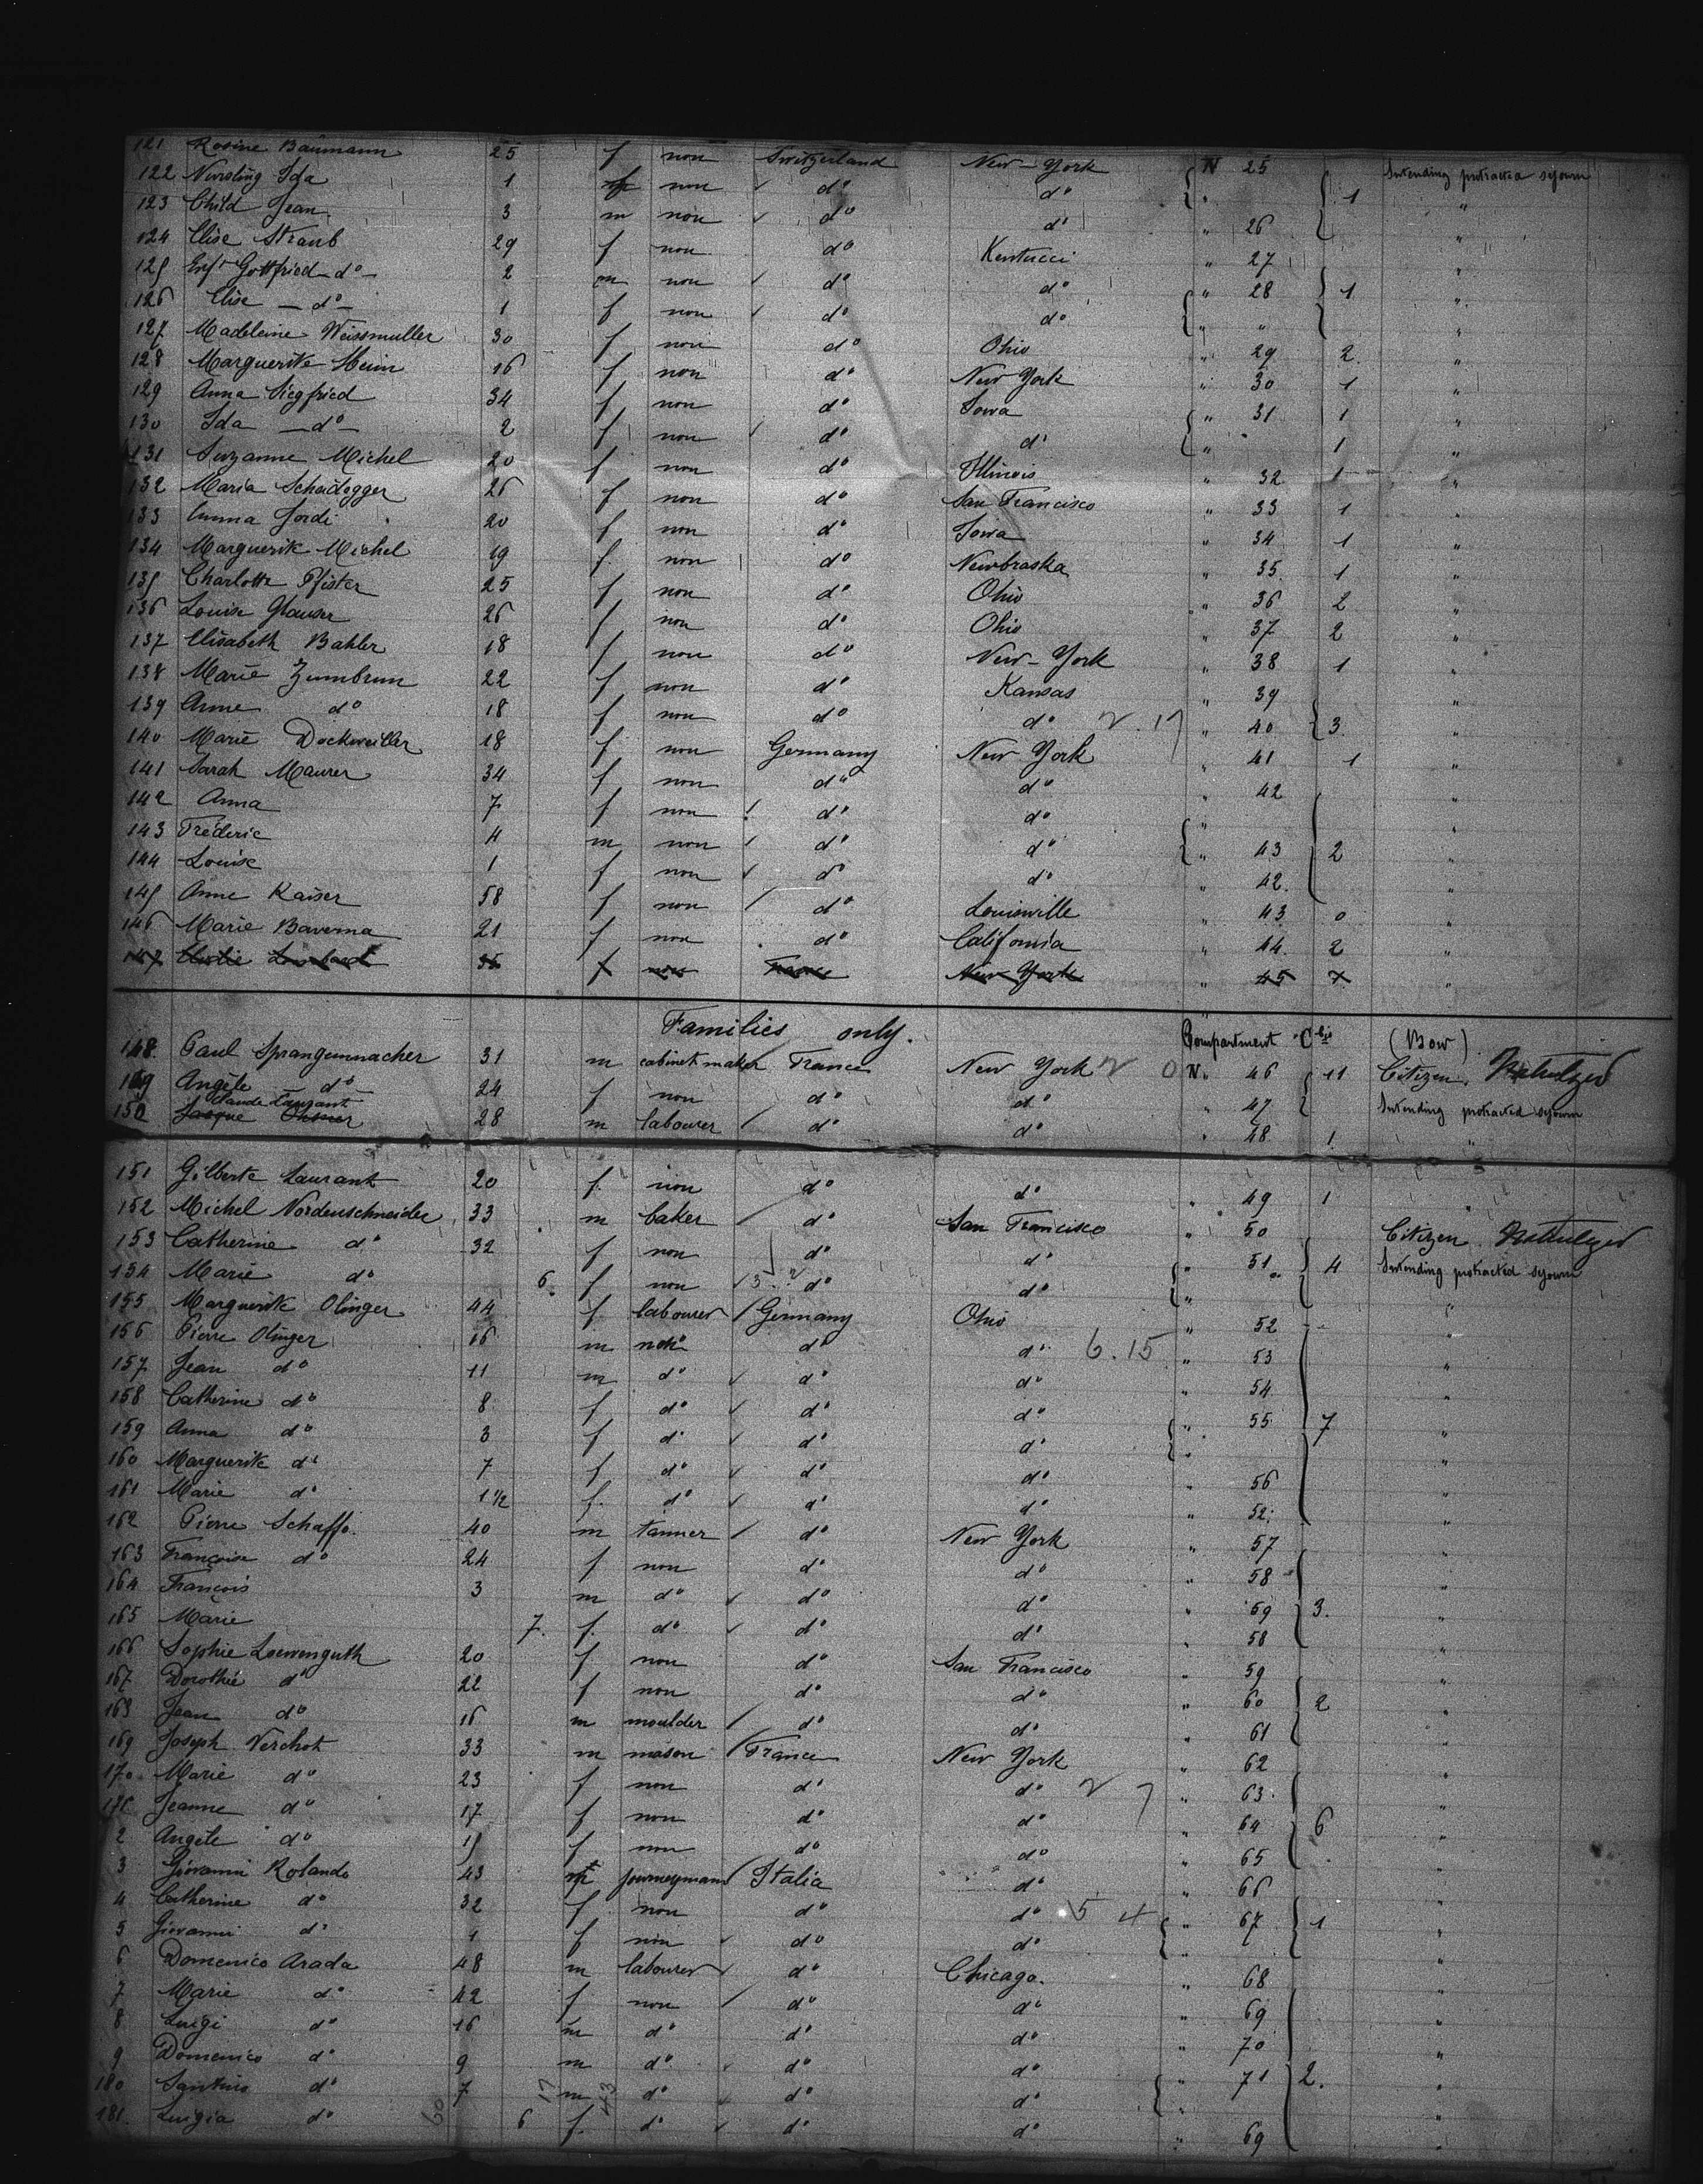 121 Rosine Baumann 25 f non Switzerland New-York N 25 Intending protracted sejourn
122 Nursling Ida 1 f non d° d° " 1 "
123 Child Jean 3 m non d° d° " 26 "
124 Elise Straub 29 f non d° Kentucci " 27 "
125 Enft Gottfried d° 2 m non d° d° " 28 1 "
126 Elise d° 1 f non d° d° " " "
127 Madeleine Weissmuller 30 f non d° Ohio " 29 2 "
128 Marguerite Heim 16 f non d° New York " 30 1 "
129 Anna Siegfried 34 f non d° Iowa " 31 1 "
130 Ida d° 2 f non d° d° " 1 "
131 Suzanne Michel 20 f non d° Illinois " 32 1 "
132 Maria Scheidegger 26 f non d° San Francisco " 33 1 "
133 Emma Jordi 20 f non d° Iowa " 34 1 "
134 Marguerite Michel 19 f non d° Newbraska " 35 1 "
135 Charlotte Pfister 25 f non d° Ohio " 36 2 "
136 Louise Glauser 26 f non d° Ohio " 37 2 "
137 Elisabeth Bahler 18 f non d° New-York " 38 1 "
138 Marie Zumbrun 22 f non d° Kansas " 39 "
139 Anne d° 18 f non d° d° 2.17 " 40 3 "
140 Marie Dockweiller 18 f non Germany New York " 41 1 "
141 Sarah Maurer 34 f non d° d° " 42 "
142 Anna 7 f non d° d° " "
143 Fréderic 4 m non d° d° " 43 2 "
144 Louise 1 f non d° d° " 42 "
145 Anne Kaiser 58 f non d° Louisville " 43 0 "
146 Marie Baverna 21 f non d° California " 44 2 "
147 35 f non France New York " 45 "
Families only. Compartment C bis (Bow)
148 Paul Spangenmacher 31 m cabinet maker France New York 2 0 N 46 11 Citizen
149 Angèle d° 24 f non d° d° " 47 Intending protracted sejourn
150 Claude Laurant 28 m labourer d° d° " 48 1 "
151 Gilberte Laurant 20 f non d° d° " 49 1 "
152 Michel Nordenschneider 33 m baker d° San Francisco " 50 Citizen
153 Catherine d° 32 f non d° d° " 51 4 Intending protracted sejourn
154 Marie d° 6 f non 3 2 d° d° " "
155 Marguerite Olinger 44 f labourer Germany Ohio " 52 "
156 Pierre Olinger 16 m non d° d° 6.15 " 53 "
157 Jean d° 11 m d° d° d° " 54 "
158 Catherine d° 8 f d° d° d° " 55 7 "
159 Anna d° 3 f d° d° d° " "
160 Marguerite d° 7 f d° d° d° " 56 "
161 Marie d° 1 1/2 f d° d° d° " 52 "
162 Pierre Schaffo 40 m tanner d° New York " 57 "
163 Françoise d° 24 f non d° d° " 58 "
164 François 3 m d° d° d° " 59 3. "
165 Marie 7. f d° d° d° " 58 "
166 Sophie Loewenguth 20 f non d° San Francisco " 59 "
167 Dorothée d° 22 f non d° d° " 60 2 "
168 Jean d° 16 m moulder d° d° " 61 "
169 Joseph Verchot 33 m mason France New York " 62 "
170 Marie d° 23 f non d° d° 2 7 " 63 "
171 Jeanne d° 17 f non d° d° " 64 6 "
2 Angèle d° 15 f non d° d° " 65 "
3 Giovanni Rolando 43 m journeyman Italia d° " 66 "
4 Catherine d° 32 f non d° d° 5 4 " 67 1 "
5 Giovanni d° 1 f non d° d° " "
6 Domenico Arada 48 m labourer d° Chicago. " 68 "
7 Marie d° 42 f non d° d° " 69 "
8 Luigi d° 16 m d° d° d° " 70 "
9 Domenico d° 9 m d° d° d° " 71 2. "
180 d° 7 17 m 43 d° d° d° " "
181. Luigia d° 60 6 f. d° d° d° " 69 "